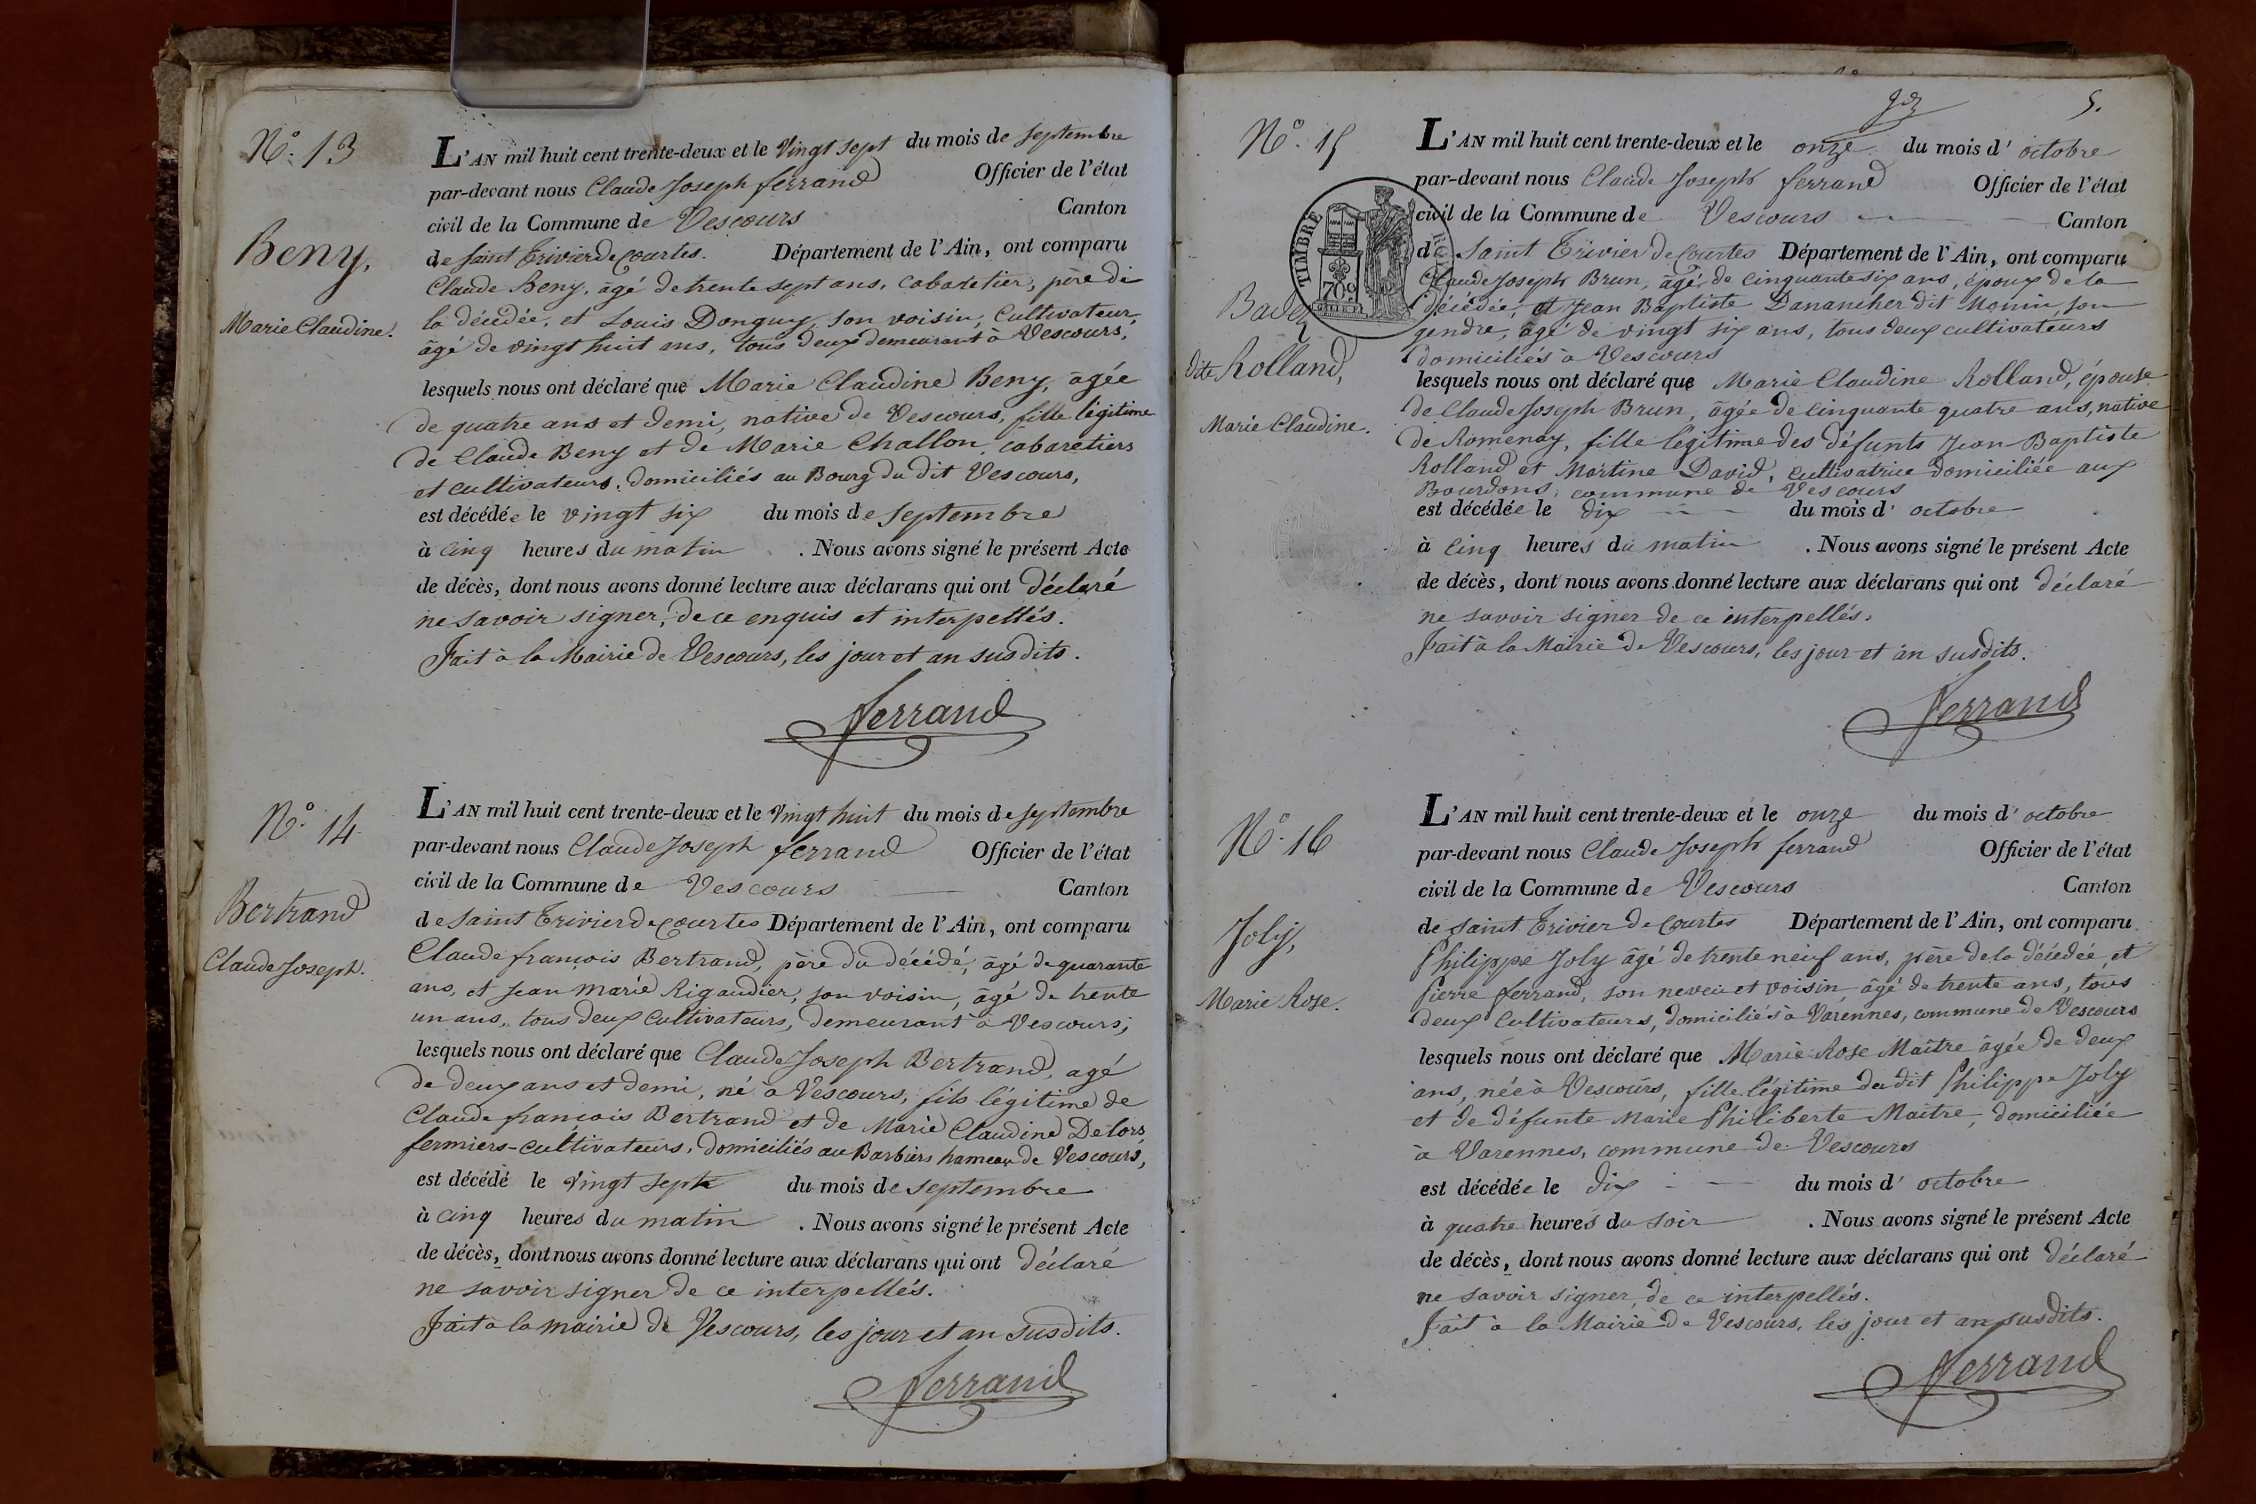 N.o 13
Beny,
Marie Claudine.
L'AN mil huit cent trente-deux et le vingt sept du mois de septembre
par-devant nous Claude Joseph ferrand Officier de l'état
civil de la Commune de Vescours Canton
de Saint Trivier de Courtes. Département de l'Ain, ont comparu
Claude Beny, âgé de trente sept ans, cabaretier, père de
la décédée, et Louis Donguy, son voisin, Cultivateur,
âgé de vingt huit ans, tous deux demeurant à Vescours,
lesquels nous ont déclaré que Marie Claudine Beny, âgée
de quatre ans et demi, native de Vescours, fille légitime
de Claude Beny et de Marie Challon, cabaretiers
et cultivateurs, domiciliés au Bourg du dit Vescours,
est décédée le vingt six du mois de septembre
à cinq heures du matin . Nous avons signé le présent Acte
de décès, dont nous avons donné lecture aux déclarans qui ont déclaré
ne savoir signer, de ce enquis et interpellés.
Fait à la Mairie de Vescours, les jour et an susdits.
ferrand
N.o 14
Bertrand
Claude Joseph.
L'AN mil huit cent trente-deux et le vingt huit du mois de septembre
par-devant nous Claude Joseph ferrand Officier de l'état
civil de la Commune de Vescours Canton
de Saint Trivier de Courtes Département de l'Ain, ont comparu
Claude françois Bertrand, père du décédé, âgé de quarante
ans, et Jean Marie Rigaudier, son voisin, âgé de trente
un ans, tous deux Cultivateurs, demeurant à Vescours;
lesquels nous ont déclaré que Claude Joseph Bertrand, agé
de deux ans et demi, né à Vescours, fils légitime de
Claude françois Bertrand et de Marie Claudine Delors
fermiers-cultivateurs, domiciliés au Barbiers hameau de Vescours,
est décédé le vingt sept du mois de septembre
à cinq heures du matin . Nous avons signé le présent Acte
de décès, dont nous avons donné lecture aux déclarans qui ont déclaré
ne savoir signer de ce interpellés.
Fait à la mairie de Vescours, les jour et an susdits.
ferrand
5.
N.o 15
TIMBRE
70c
Badez
dite Rolland,
Marie Claudine.
L'AN mil huit cent trente-deux et le onze du mois d' octobre
par-devant nous Claude Joseph ferrand Officier de l'état
civil de la Commune de Vescours Canton
de Saint Trivier de Courtes Département de l'Ain, ont comparu
Claude Joseph Brun, âgé de cinquante six ans, époux de la
décédée, et Jean Baptiste Danancher dit Monin, son
gendre, âgé de vingt six ans, tous deux cultivateurs
domiciliés à Vescours
lesquels nous ont déclaré que Marie Claudine Rolland, épouse
de Claude Joseph Brun, âgée de cinquante quatre ans, native
de Romenay, fille légitime des défunts Jean Baptiste
Rolland et Martine David, cultivatrice domiciliée aux
Bourdons, commune de Vescours
est décédée le dix du mois d' octobre
à cinq heures du matin . Nous avons signé le présent Acte
de décès, dont nous avons donné lecture aux déclarans qui ont déclaré
ne savoir signer de ce interpellés.
Fait à la Mairie de Vescours, les jour et an susdits.
ferrand
N.o 16
Joly,
Marie Rose.
L'AN mil huit cent trente-deux et le onze du mois d' octobre
par-devant nous Claude Joseph ferrand Officier de l'état
civil de la Commune de Vescours Canton
de Saint Trivier de Courtes Département de l'Ain, ont comparu
Philippe Joly âgé de trente neuf ans, père de la décédée, et
Pierre ferrand, son neveu et voisin âgé de trente ans, tous
deux Cultivateurs, domiciliés à Varennes, commune de Vescours
lesquels nous ont déclaré que Marie Rose Maître âgée de deux
ans, née à Vescours, fille légitime du dit Philippe Joly
et de défunte Marie Philiberte Maître, domiciliée
à Varennes, commune de Vescours
est décédée le dix du mois d' octobre
à quatre heures du soir . Nous avons signé le présent Acte
de décès, dont nous avons donné lecture aux déclarans qui ont déclaré
ne savoir signer, de ce interpellés.
Fait à la Mairie de Vescours, les jour et an susdits.
ferrand